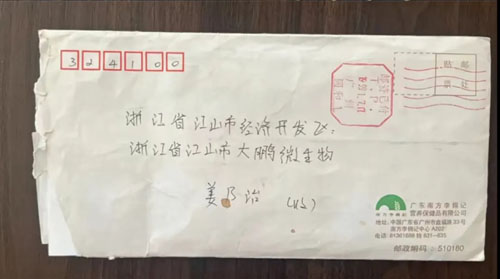 324100
贴邮
票处
浙江省江山市经济开发区:
浙江省江山市大鹏微生物
姜乃治 (收)
广东南方李锦记
营养保健品有限公司
地址: 中国广东省广州市盘福路33号
南方李锦记中心A202
电话: 81361688 转 831-835
邮政编码: 510180